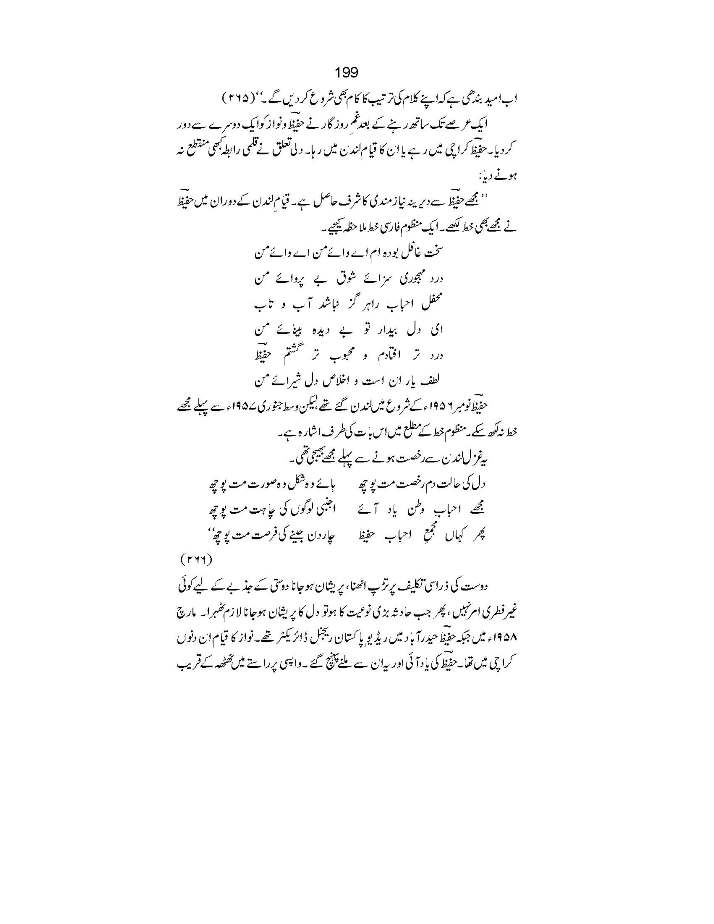 199
اب امید بندھی ہے کہ اپنے کلام کی ترتیب کا کام بھی شروع کردیں گے۔‘‘(۲۶۵)
ایک عرصے تک ساتھ رہنے کے بعد غمِ روزگار نے حفیظؔ ونواز کو ایک دوسرے سے دور
کردیا۔ حفیظؔ کراچی میں رہے یا ان کا قیام لندن میں رہا۔ دلی تعلق نے قلمی رابطہ کبھی منقطع نہ
ہونے دیا:
’’مجھے حفیظؔ سے دیرینہ نیازمندی کا شرف حاصل ہے۔ قیام لندن کے دوران میں حفیظؔ
نے مجھے بھی خط لکھے۔ ایک منظوم فارسی خط ملاحظہ کیجیے۔
سخت غافل بودہ ام اے وائے من اے وائے من
درد مہجوری سزائے شوق بے پروائے من
محفل احباب راہر گز نباشد آب و تاب
ای دل بیدار تو بے دیدہ بینائے من
درد تر افتادم و محبوب تر گشتم حفیظؔ
لطف یار ان است و اخلاص دل شیرائے من
حفیظؔ نومبر ۱۹۵۶ء کے شروع میں لندن گئے تھے لیکن وسط جنوری ۱۹۵۷ء سے پہلے مجھے
خط نہ لکھ سکے۔ منظوم خط کے مطلع میں اس بات کی طرف اشارہ ہے۔
یہ غزل لندن سے رخصت ہونے سے پہلے مجھے بھیجی تھی۔
دل کی حالت دم رخصت مت پوچھ ہائے وہ شکل وہ صورت مت پوچھ
مجھے احباب وطن یاد آئے اجنبی لوگوں کی چاہت مت پوچھ
پھر کہاں مجمع احباب حفیظ چار دن جینے کی فرصت مت پوچھ‘‘
(۲۶۶)
دوست کی ذراسی تکلیف پر تڑپ اٹھنا، پریشان ہوجانا دوستی کے جذبے کے لیے کوئی
غیر فطری امر نہیں، پھر جب حادثہ بڑی نوعیت کا ہوتو دل کا پریشان ہوجانا لازم ٹھہرا۔ مارچ
۱۹۵۸ء میں جبکہ حفیظؔ حیدرآباد میں ریڈیو پاکستان ریجنل ڈائریکٹر تھے۔ نواز کا قیام ان دنوں
کراچی میں تھا۔ حفیظؔ کی یاد آئی اور یہ ان سے ملنے پہنچ گئے۔ واپسی پر راستے میں ٹھٹھہ کے قریب